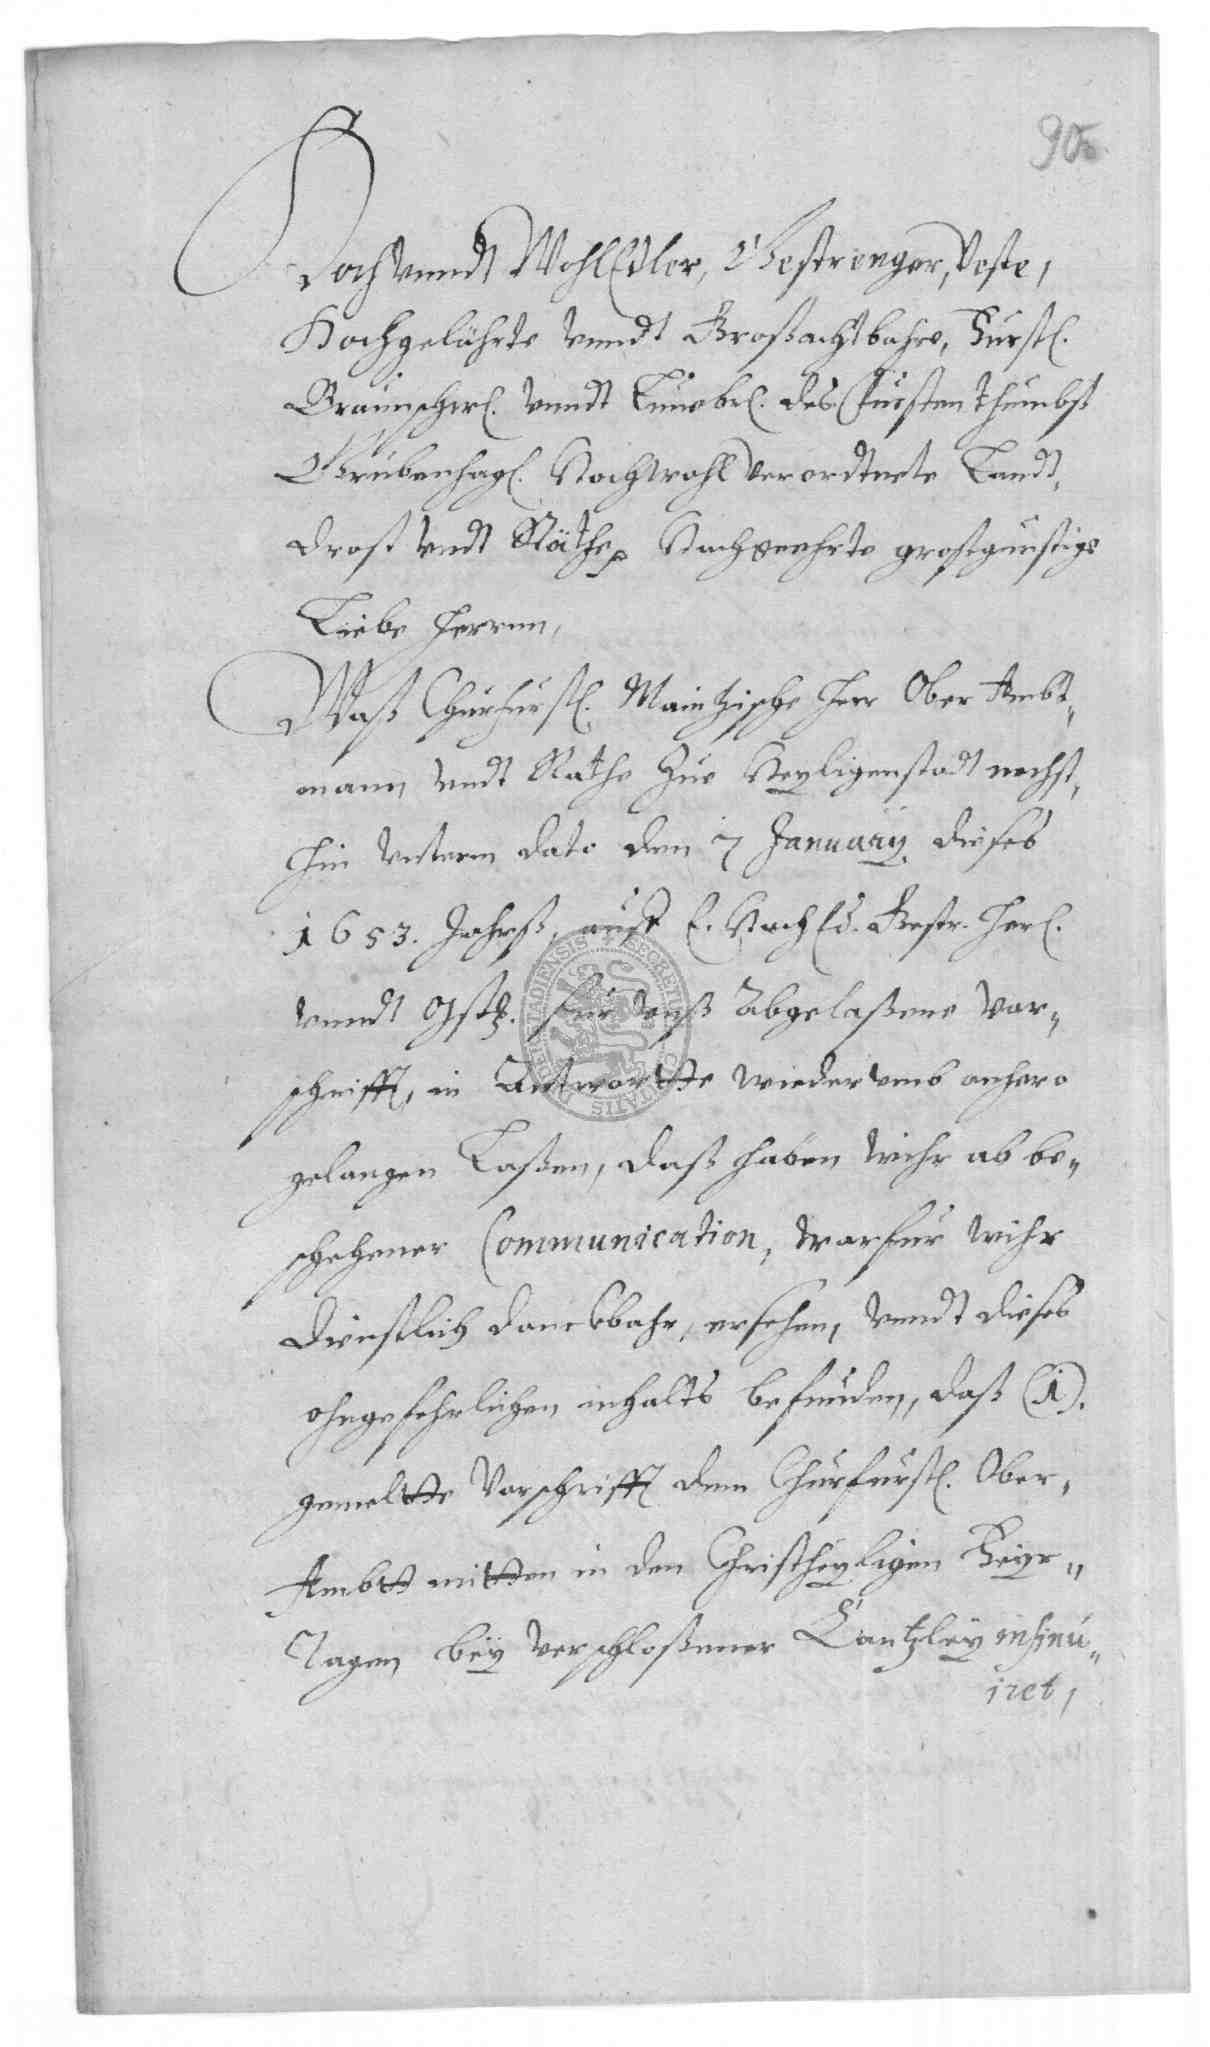 90
Hoch vnndt WohlEdler, Gestrenger, Veste,
Hochgelährte vnndt Großachtbahre, Fürstl.
Braunschwl. vnndt Lünebl. des Fürstenthumbß
Grubenhagl. Hochwohl Verordtnete Landt,
drost vndt Räthe, Hochgeehrte großgünstige
Liebe Herren,
Waß Churfürstl. Maintzische Herr Ober Ambt„
mann vndt Räthe Zue Heyligenstadt nechst,
hin vnterm dato den 7 January dieses
1653. Jahrß, auf E. HochEd. Gestr. Herl.
vnndt Gst. für vnß abgelaßene Vor„
schrifft, in Antwortte wiedervmb anhero
gelangen Laßen, daß haben wihr ab be„
schehener Communication, warfür wihr
dienstlich danckbahr, ersehen, vnndt dieses
ohngefehrlichen inhalts befunden, daß (1).
gemeltte Vorschrifft dem Churfürstl. Ober„
Ambtt mitten in den Christheyligen Feyr„
Tagen bey verschloßener Cantzley insinu„
iret,